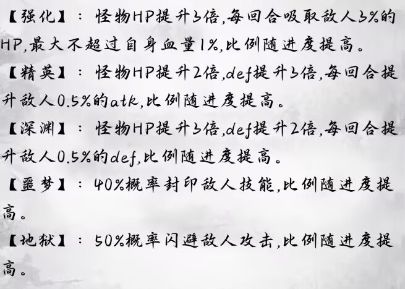 【强化】：怪物HP提升3倍,每回合吸取敌人3%的
HP,最大不超过自身血量1%,比例随进度提高。
【精英】：怪物HP提升2倍,def提升3倍,每回合提
升敌人0.5%的atk,比例随进度提高。
【深渊】：怪物HP提升3倍,def提升2倍,每回合提
升敌人0.5%的def,比例随进度提高。
【噩梦】：40%概率封印敌人技能,比例随进度提
高。
【地狱】：50%概率闪避敌人攻击,比例随进度提
高。